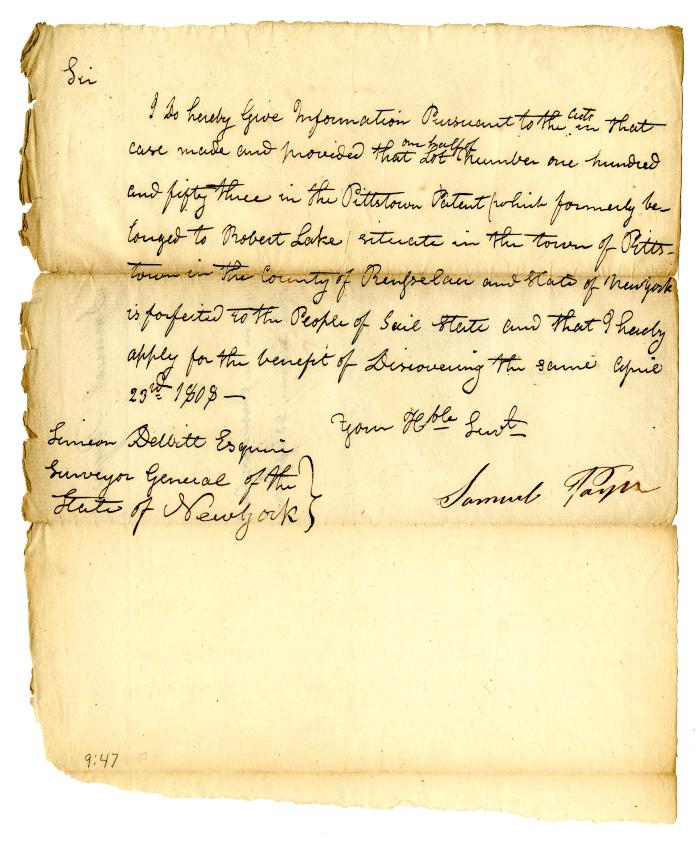 Sir
I Do hereby Give Information Pursuant to the acts in that
case made and provided that one half of Lot number one hundred
and fifty three in the Pittstown Patent (which formerly be-
longed to Robert Lake) situate in the town of Pitts-
town in the County of Rensselaer and State of Newyork
is forfeited to the People of Said State and that I hereby
apply for the benefit of Discovering the same April
23rd 1808 —
Your Hble Servt
Simeon DeWitt Esquire
Surveyor General of the
State of New York }
Samuel
9:47